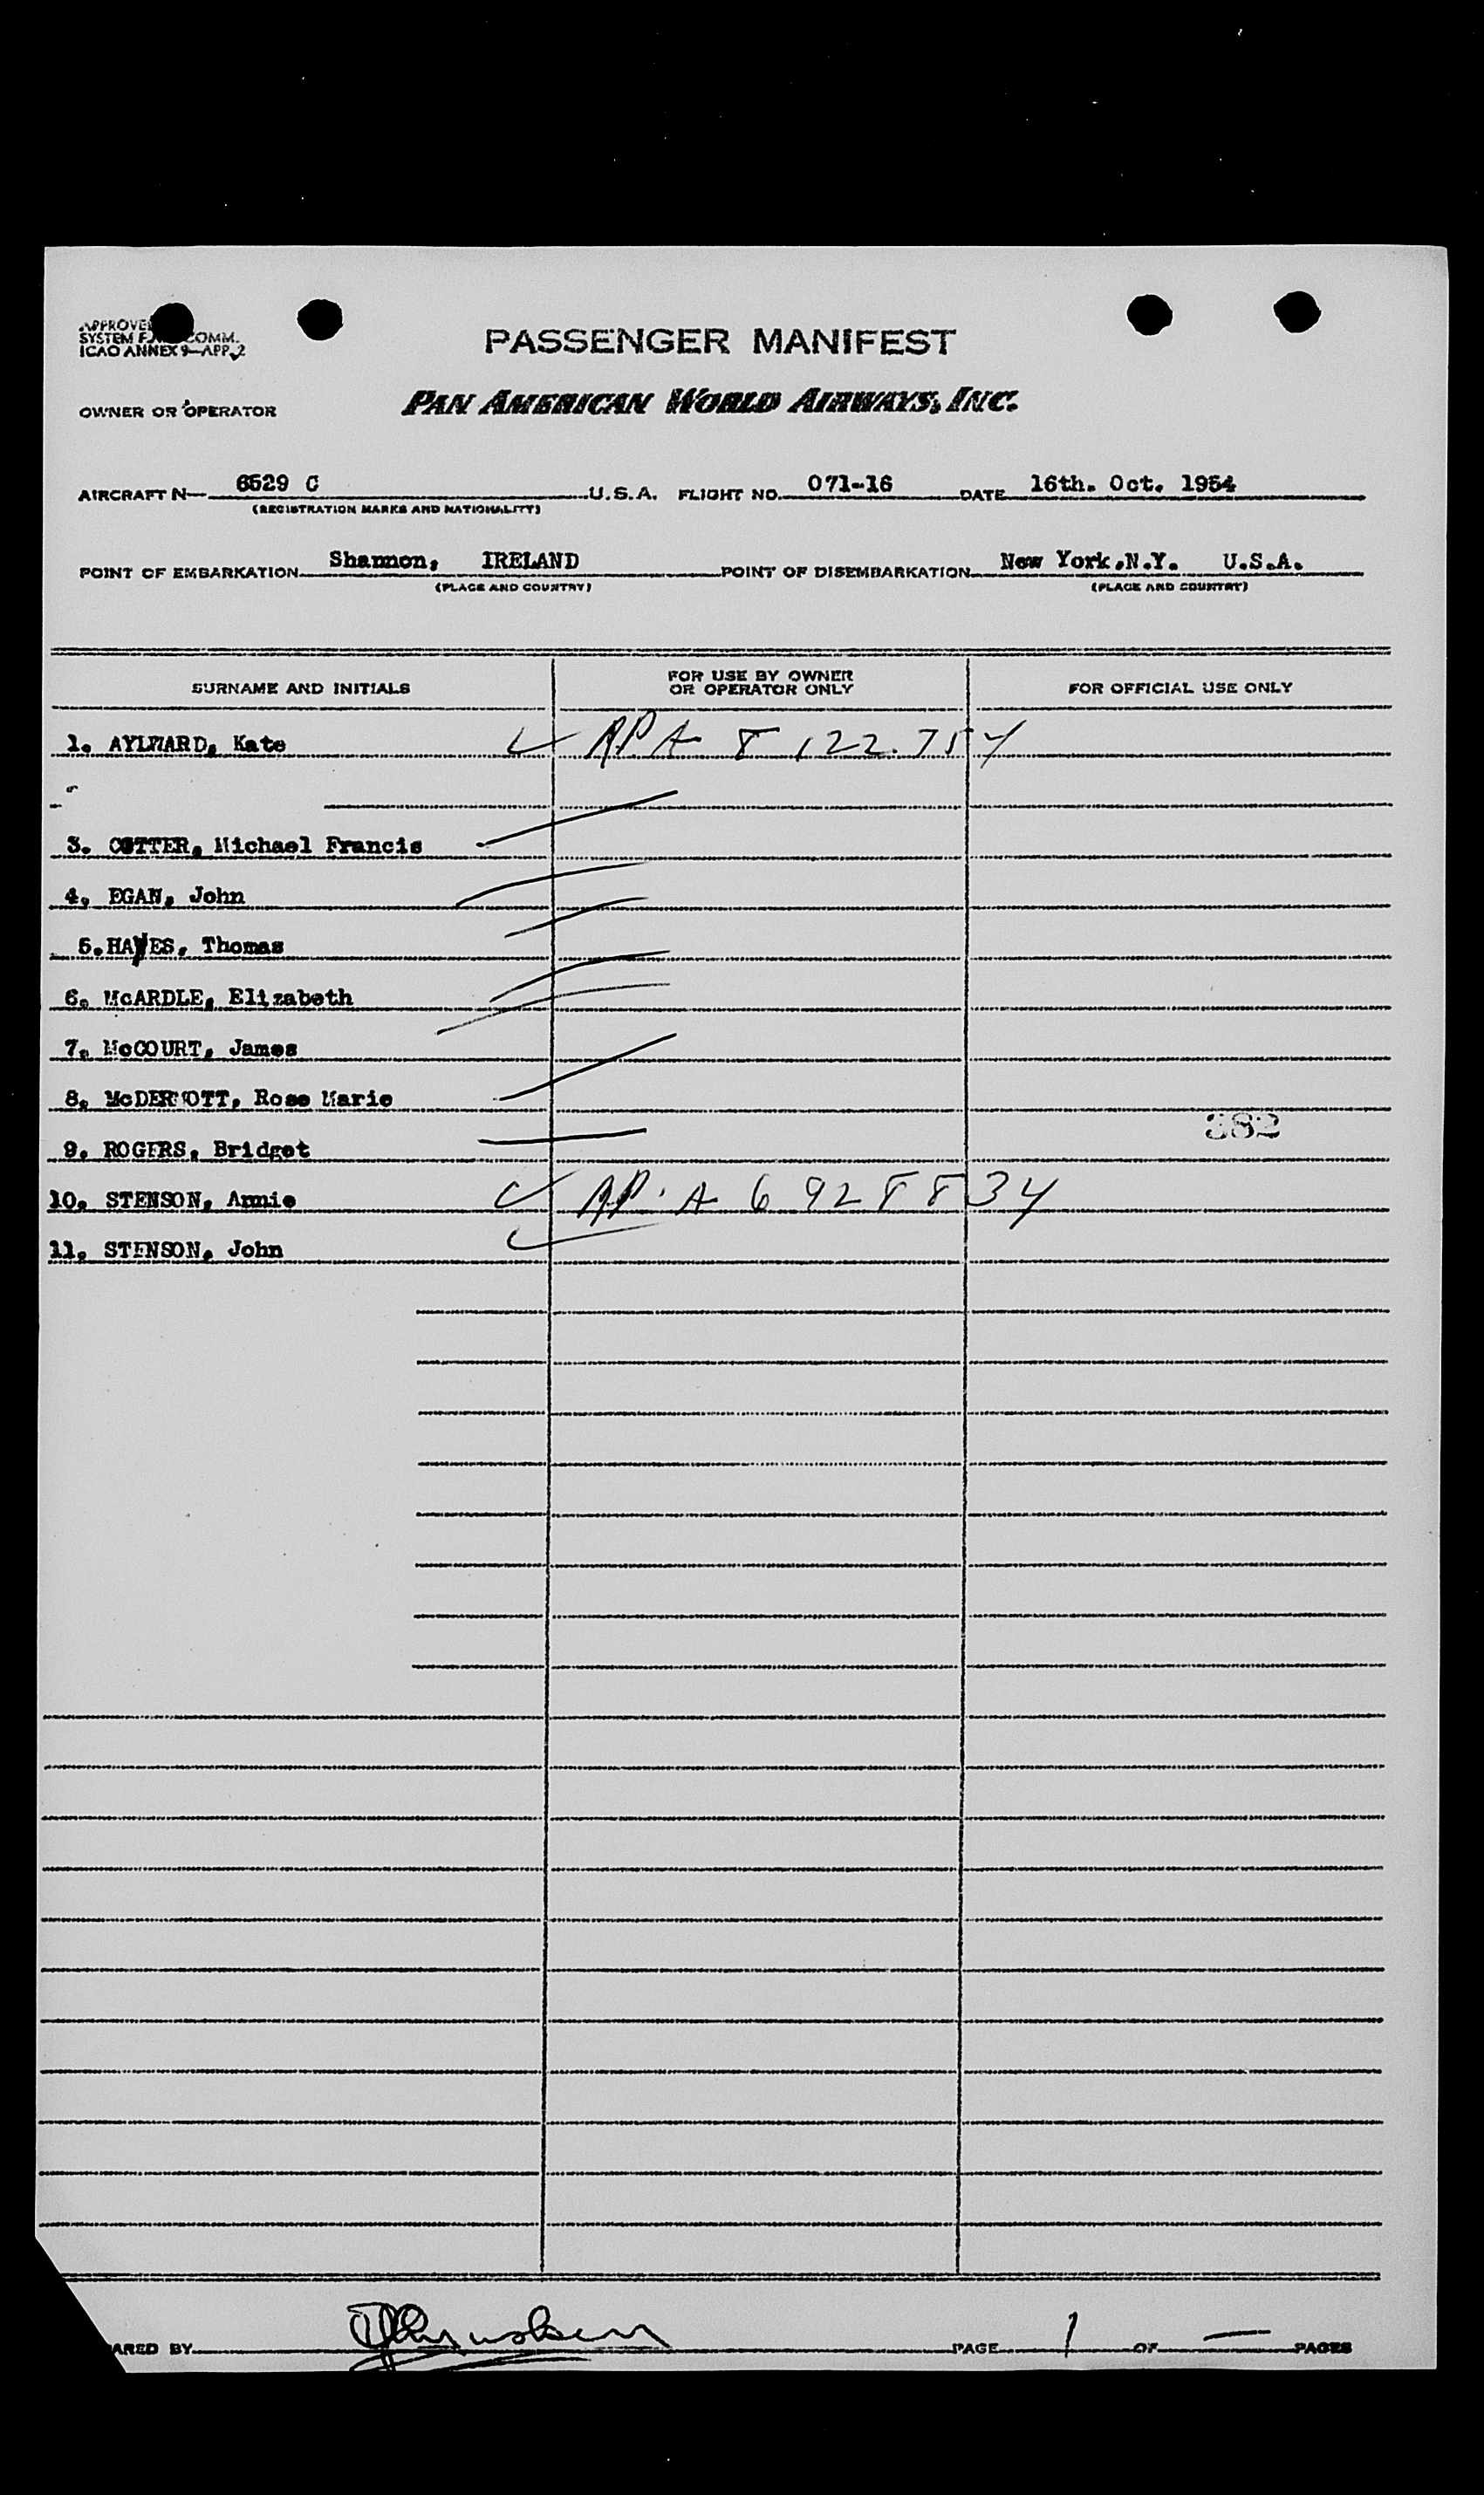 SYSTEM F COMM.
ICAO ANNEX 9—APP. 2
PASSENGER MANIFEST
OWNER OR OPERATOR PAN AMERICAN WORLD AIRWAYS, INC.
AIRCRAFT N— 6529 C U.S.A. FLIGHT NO. 071-16 DATE 16th. Oct. 1954
(REGISTRATION MARKS AND NATIONALITY)
POINT OF EMBARKATION Shannon, IRELAND POINT OF DISEMBARKATION New York.N.Y. U.S.A.
(PLACE AND COUNTRY) (PLACE AND COUNTRY)
SURNAME AND INITIALS FOR USE BY OWNER OR OPERATOR ONLY FOR OFFICIAL USE ONLY
1. AYLWARD, Kate A 8 122 754
3. COTTER, Michael Francis
4. EGAN, John
5. HAYES, Thomas
6. McARDLE, Elizabeth
7. McCOURT, James
8. McDERMOTT, Rose Marie
382
9. ROGERS, Bridget
10. STENSON, Annie A 6 928 834
11. STENSON, John
BY PAGE 1 OF — PAGES